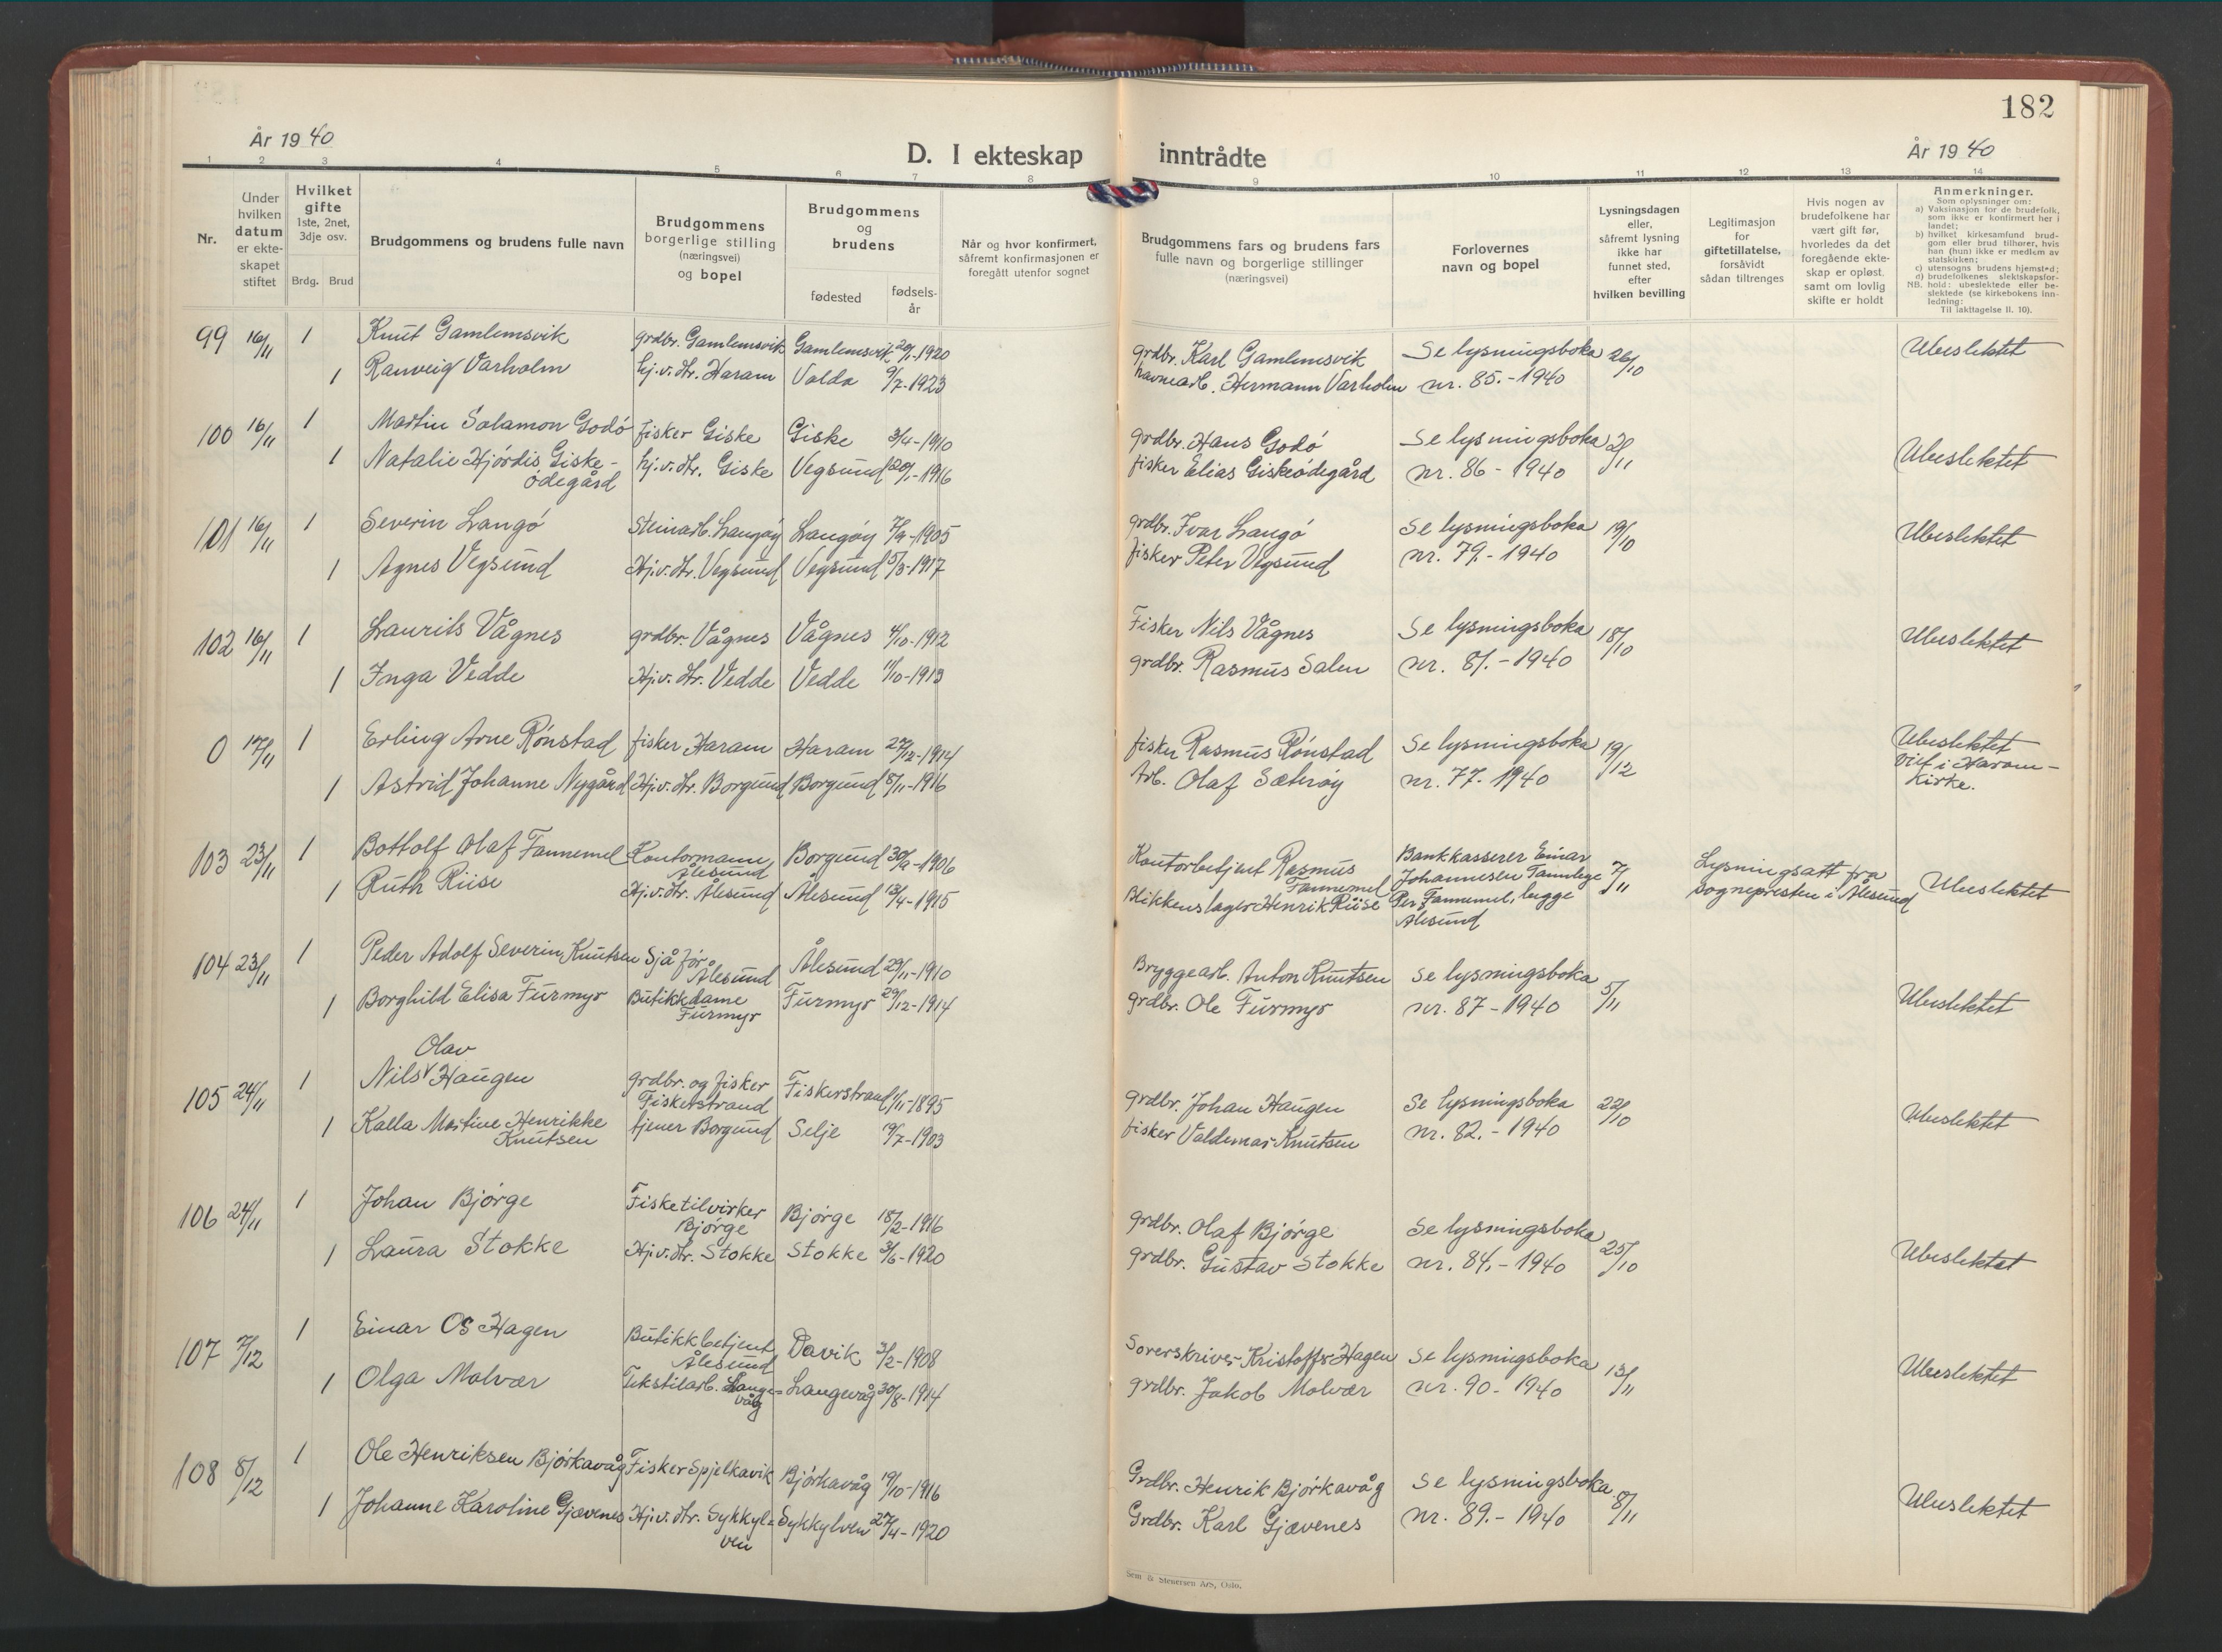 182
År 1940
D. I ekteskap inntrådte
År 1940
1 2 3 4 5 6 7 8 9 10 11 12 13 14
Nr.
Under hvilken datum er ekte-skapet stiftet
Hvilket gifte
1ste, 2net, 3dje osv.
Brdg. Brud
Brudgommens og brudens fulle navn
Brudgommens borgerlige stilling (næringsvei) og bopel
Brudgommens og brudens
fødested
fødsels-år
Når og hvor konfirmert, såfremt konfirmasjonen er foregått utenfor sognet
Brudgommens fars og brudens fars fulle navn og borgerlige stillinger (næringsvei)
Forlovernes navn og bopel
Lysningsdagen eller, såfremt lysning ikke har funnet sted, efter hvilken bevilling
Legitimasjon for giftetillatelse, forsåvidt sådan tiltrenges
Hvis nogen av brudefolkene har vært gift før, hvorledes da det foregående ekte-skap er opløst, samt om lovlig skifte er holdt
Anmerkninger.
Som oplysninger om:
a) Vaksinasjon for de brudefolk, som ikke er konfirmert her i landet;
b) hvilket kirkesamfund brud-gom eller brud tilhører, hvis han (hun) ikke er medlem av statskirken;
c) utensogns brudens hjemsted;
d) brudefolkenes slektskapsfor-hold: ubeslektede eller be-slektede (se kirkebokens inn-ledning:
NB.
Til iakttagelse II. 10).
99 16/11 1 Knut Gamlemsvik grdbr. Gamlemsvik Gamlemsvik 20/1-1920 grdbr. Karl Gamlemsvik Se lysningsboka 26/10 Ubeslektet
1 Ranveig Varholm hj.v.dtr. Haram Valda 9/7-1923 havnearb. Hermann Varholm nr. 85.-1940
100 16/11 1 Martin Salamon Godø fisker Giske Giske 3/4-1910 grdbr. Hans Godø Se lysningsboka 2/11 Ubeslektet
1 Natalie Hjørdis Giske-ødegård hj.v.dtr. Giske Vegsund 20/1-1916 fisker Elias Giskeødegård nr. 86-1940
101 16/11 1 Severin Langø Steinarb. Langøy Langøy 7/9-1905 grdbr. Ivar Langø Se lysningsboka 19/10 Ubeslektet
1 Agnes Vegsund Hj.v.dtr. Vegsund Vegsund 5/3-1917 fisker Peter Vegsund nr. 79.-1940
102 16/11 1 Laurits Vågnes grdbr. Vågnes Vågnes 4/10-1912 Fisker Nils Vågnes Se lysningsboka 18/10 Ubeslektet
1 Inga Vedde Hj.v.dtr. Vedde Vedde 11/10-1913 grdbr. Rasmus Salen nr. 81.-1940
0 17/11 1 Erling Arne Rønstad fisker Haram Haram 27/12-1914 fisker Rasmus Rønstad Se lysningsboka 19/12 Ubeslektet
viet i Haram-kirke.
1 Astrid Johanne Nygård Hj.v.dtr. Borgund Borgund 5/11-1916 Arb. Olaf Sæterøy nr. 77. 1940
103 23/11 1 Bottolf Olaf Fannemel Kontormann, Ålesund Borgund 30/9-1906 Kontorbetjent Rasmus Fannemel Bankkasserer Einar Johannesen Tannlege 7/11 Lysningsatt fra sognepresten i Ålesund Ubeslektet
1 Ruth Riise Hj.v.dtr. Ålesund Ålesund 13/4-1915 Blikkenslager Henrik Riise Per Fannemel, begge Ålesund
104 23/11 1 Peder Adolf Severin Knutsen Sjåfør Ålesund Ålesund 29/11-1910 Bryggearb. Anton Knutsen Se lysningsboka 5/11 Ubeslektet
1 Borghild Elisa Furmyr Butikkdame Furmyr Furmyr 29/12-1914 grdbr. Ole Furmyr nr. 87-1940
Olav
105 24/11 1 Nils Haugen grdbr. og fisker Fiskerstrand Fiskerstrand 1/11-1895 grdbr. Johan Haugen Se lysningsboka 22/10 Ubeslektet
1 Kalla Martine Henrikke Knutsen tjener Borgund Selje 19/7-1903 fisker Valdemar Knutsen nr. 82.-1940
106 24/11 1 Johan Bjørge Fisketilvirker Bjørge Bjørge 18/2-1916 grdbr. Olaf Bjørge Se lysningsboka 25/10 Ubeslektet
1 Laura Stokke Hj.v.dtr. Stokke Stokke 3/6-1920 grdbr. Gustav Stokke nr. 84.-1940
107 7/12 1 Einar Os Hagen Butikkbetjent Ålesund Davik 3/2-1908 Sorenskriver Kristoffer Hagen Se lysningsboka 13/11 Ubeslektet
1 Olga Molvær Tekstilarb. Lange-våg Langevåg 30/8-1914 grdbr. Jakob Molvær nr. 90-1940
108 8/12 1 Ole Henriksen Bjørkavåg Fisker Spjelkavik Bjørkavåg 19/10-1916 Grdbr. Henrik Bjørkavåg Se lysningsboka 8/11 Ubeslektet
1 Johanne Karoline Gjævenes Hj.v.dtr. Sykkyl-ven Sykkylven 27/4-1920 Grdbr. Karl Gjævenes nr. 89.-1940
Sem & Stenersen A/S, Oslo.